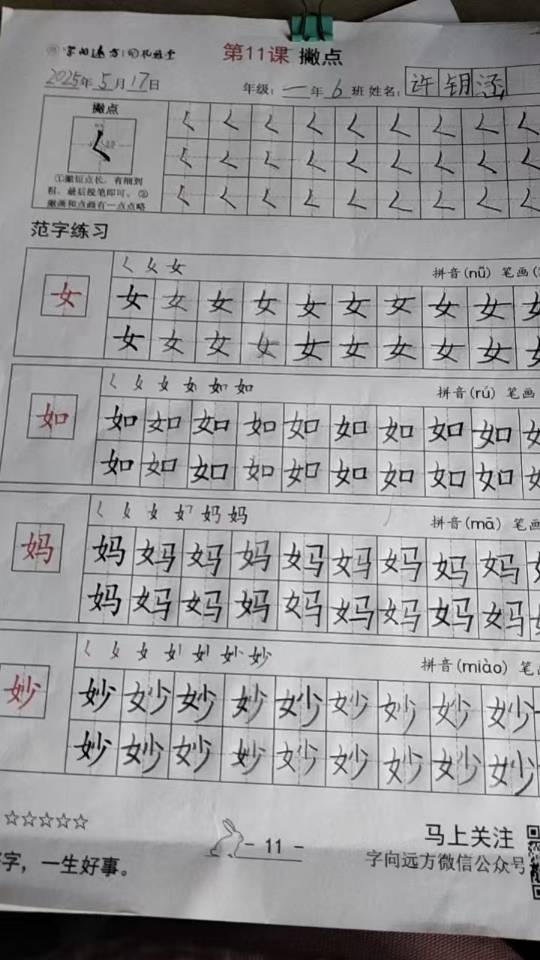 字向远方
第11课 撇点
2025年5月17日
年级：一年6班 姓名：许钥涵
撇点
①撇短点长，有细到
粗，最后没笔即可。②
撇画和点画有一点点略
𡿨 𡿨 𡿨 𡿨 𡿨 𡿨 𡿨 𡿨 𡿨
𡿨 𡿨 𡿨 𡿨 𡿨 𡿨 𡿨 𡿨 𡿨
𡿨 𡿨 𡿨 𡿨 𡿨 𡿨 𡿨 𡿨 𡿨
范字练习
女
拼音(nǚ) 笔画
女 女 女 女 女 女 女 女 女 女
女 女 女 女 女 女 女 女 女 女
如
拼音(rú) 笔画
如 如 如 如 如 如 如 如 如
如 如 如 如 如 如 如 如 如
妈
拼音(mā) 笔画
妈 妈 妈 妈 妈 妈 妈 妈 妈
妈 妈 妈 妈 妈 妈 妈 妈 妈
妙
拼音(miào) 笔画
妙 妙 妙 妙 妙 妙 妙 妙 妙
妙 妙 妙 妙 妙 妙 妙 妙 妙
☆☆☆☆☆
字，一生好事。
- 11 -
马上关注
字向远方微信公众号